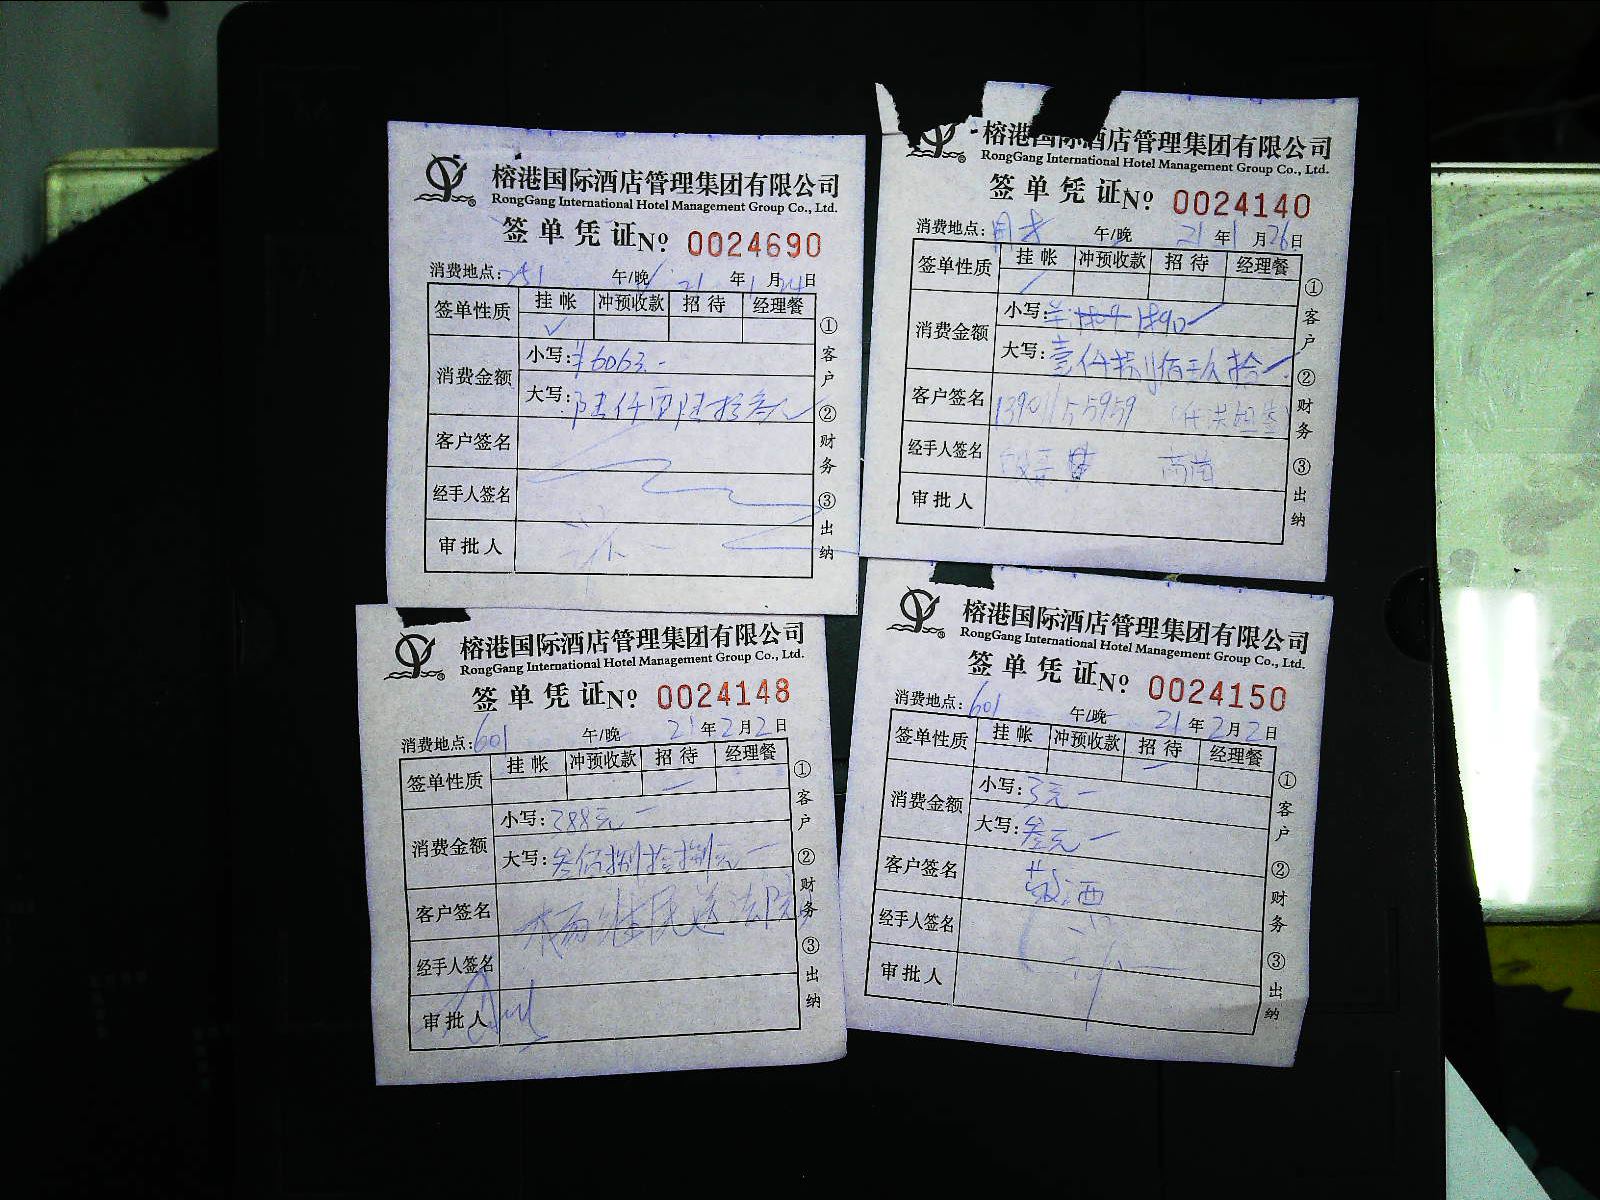 榕港国际酒店管理集团有限公司
RongGang International Hotel Management Group Co., Ltd.
签单凭证 Nº 0024690
消费地点: 251 午/晚 21 年 1 月 24 日
签单性质 挂帐 冲预收款 招待 经理餐
✓
消费金额 小写: ¥6063.-
大写: 陆仟零陆拾叁元
客户签名
经手人签名
审批人
① 客户 ② 财务 ③ 出纳
榕港国际酒店管理集团有限公司
RongGang International Hotel Management Group Co., Ltd.
签单凭证 Nº 0024140
消费地点: 午/晚 21 年 1 月 26 日
签单性质 挂帐 冲预收款 招待 经理餐
消费金额 小写: 1890
大写: 壹仟捌佰玖拾
客户签名 13901155959
经手人签名
审批人
① 客户 ② 财务 ③ 出纳
榕港国际酒店管理集团有限公司
RongGang International Hotel Management Group Co., Ltd.
签单凭证 Nº 0024148
消费地点: 601 午/晚 21 年 2 月 2 日
签单性质 挂帐 冲预收款 招待 经理餐
消费金额 小写: 388元
大写: 叁佰捌拾捌元
客户签名
经手人签名
审批人
① 客户 ② 财务 ③ 出纳
榕港国际酒店管理集团有限公司
RongGang International Hotel Management Group Co., Ltd.
签单凭证 Nº 0024150
消费地点: 601 午/晚 21 年 2 月 2 日
签单性质 挂帐 冲预收款 招待 经理餐
消费金额 小写: 3元
大写: 叁元
客户签名
经手人签名
审批人
① 客户 ② 财务 ③ 出纳